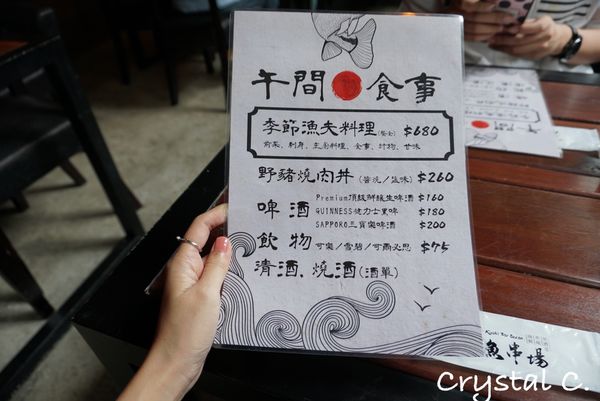 午間 食事
季節漁夫料理(餐全) $680
前菜、刺身、主廚料理、食事、汁物、甘味
野豬燒肉丼 (醬燒/鹽味) $260
啤酒
Premium頂級鮮綠生啤酒 $160
GUINNESS健力士黑啤 $180
SAPPORO三寶樂啤酒 $200
飲物 可樂/雪碧/可爾必思 $75
清酒、燒酒(酒單)
魚串場
Crystal C.